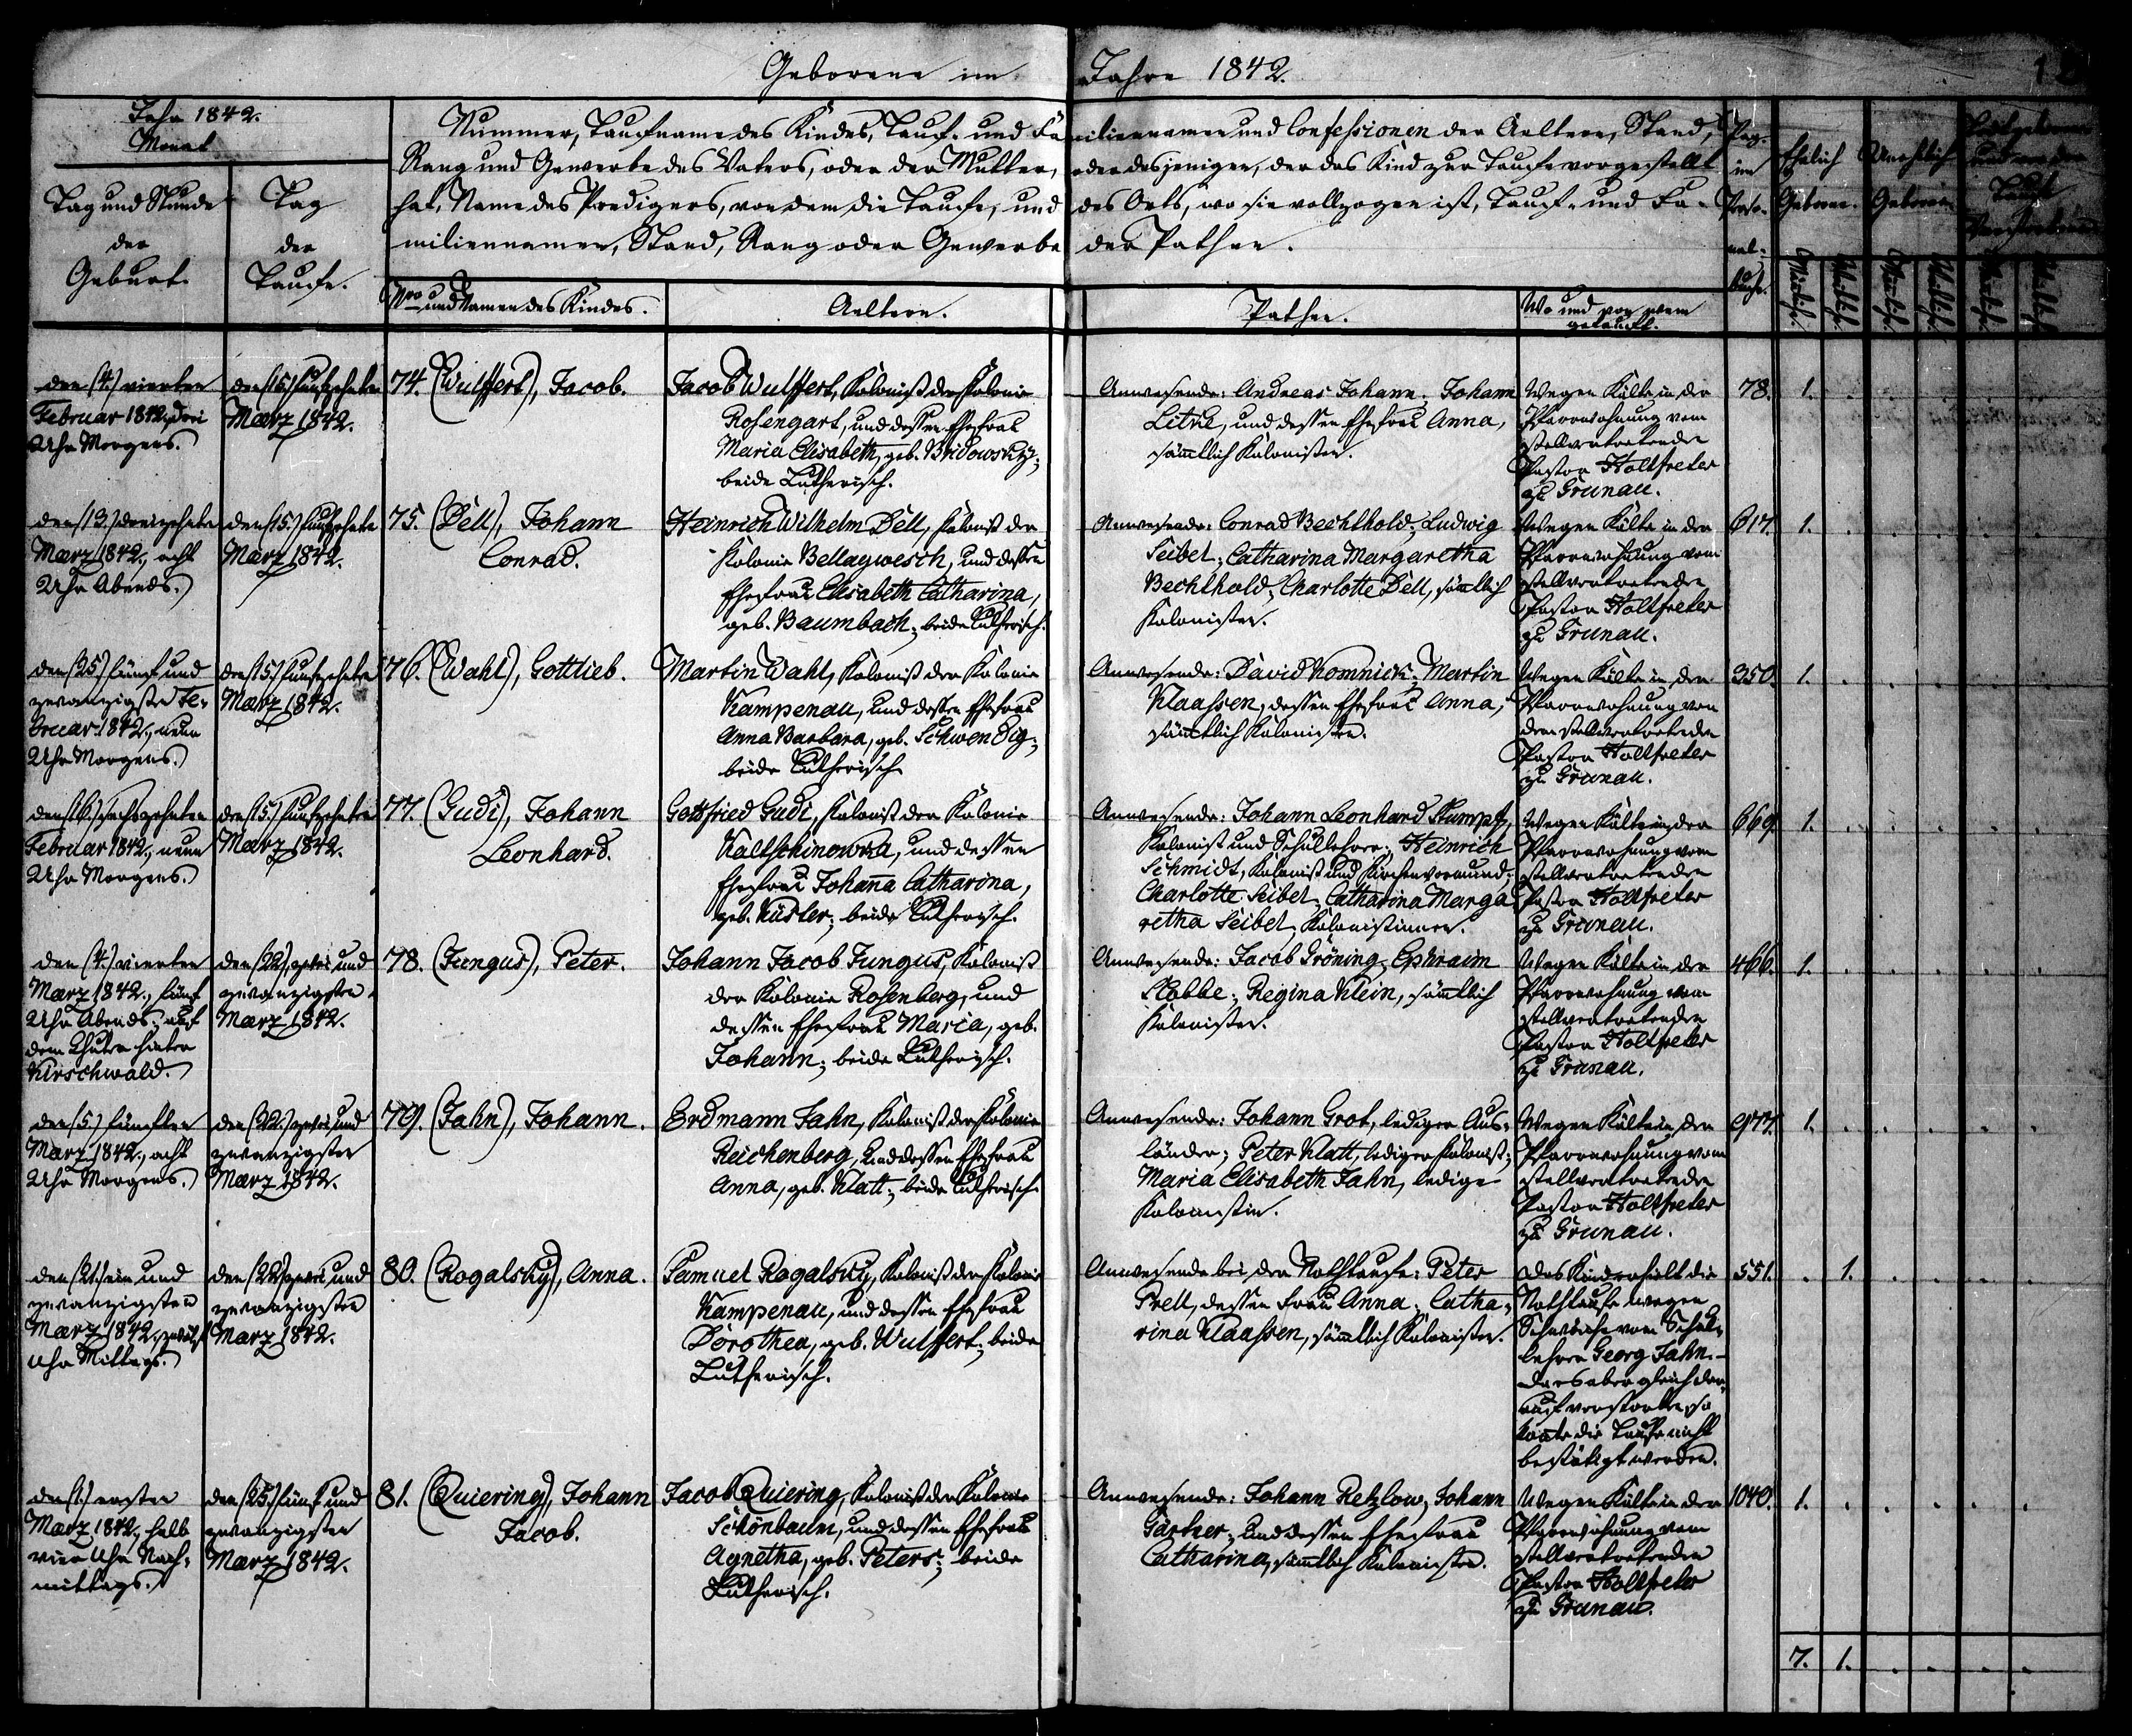 Geborene im Jahre 1842.
Jahr 1842.
Monat
Tag und Stunde
der
Geburt.
Tag
der
Taufe.
Nummer, Taufname des Kindes, Tauf- und Familiennamen und Confessionen der Aeltern, Stand,
Rang und Gewerbe des Vaters, oder der Mutter, oder desjenigen, der das Kind zur Taufe vorgestellt
hat, Name des Predigers, von dem die Taufe, und des Orts, wo sie vollzogen ist, Tauf- und Fa-
miliennamen, Stand, Rang oder Gewerbe der Pathen.
Nro und Namen des Kindes.
Aeltern.
Pathen.
Wo und von wem
getauft.
Pag.
im
Perso-
nal-
buch.
Ehelich
Geborene.
Unehelich
Geborene
Männl.
Weibl.
Männl.
Weibl.
den (4.) vierten
Februar 1842, drei
Uhr Morgens.
den (15.) fünfzehnten
März 1842.
74. (Wulffert), Jacob.
Jacob Wulffert, Kolonist der Kolonie
Rosengart, und dessen Ehefrau
Maria Elisabeth, geb. Bridowsky;
beide Lutherisch.
Anwesende: Andreas Johann; Johann
Litke, und dessen Ehefrau Anna,
sämtlich Kolonisten.
Wegen Kälte, in der
Pfarrwohnung vom
stellvertretenden
Pastor Holtfreter
zu Grunau.
78. 1.
den (13.) dreizehnten
März 1842, acht
Uhr Abends.
den (15.) fünfzehnten
März 1842.
75. (Dell), Johann
Conrad.
Heinrich Wilhelm Dell, Kolonist der
Kolonie Bellagwesch, und dessen
Ehefrau Elisabeth Catharina,
geb. Baumbach; beide Lutherisch.
Anwesende: Conrad Bechthold; Ludwig
Seibel; Catharina Margaretha
Bechthold; Charlotte Dell, sämtlich
Kolonisten.
Wegen Kälte in der
Pfarrwohnung vom
stellvertretenden
Pastor Holtfreter
zu Grunau.
617. 1.
den (25.) fünf und
zwanzigsten Fe-
bruar 1842, neun
Uhr Morgens.
den (15.) fünfzehnten
März 1842.
76. (Wahl), Gottlieb.
Martin Wahl, Kolonist der Kolonie
Kampenau, und dessen Ehefrau
Anna Barbara, geb. Schwendig;
beide Lutherisch.
Anwesende: David Komnick; Martin
Klaassen, dessen Ehefrau Anna,
sämtlich Kolonisten.
Wegen Kälte in der
Pfarrwohnung von
dem stellvertretenden
Pastor Holtfreter
zu Grunau.
350. 1.
den (16.) sechszehnten
Februar 1842, neun
Uhr Morgens.
den (15.) fünfzehnten
März 1842.
77. (Gudi), Johann
Leonhard.
Gottfried Gudi, Kolonist der Kolonie
Kaltschinowka, und dessen
Ehefrau Johanna Catharina,
geb. Küsler; beide Lutherisch.
Anwesende: Johann Leonhard Stumpf,
Kolonist und Schullehrer; Heinrich
Schmidt, Kolonist und Kirchenvormund;
Charlotte Seibel; Catharina Marga-
retha Seibel, Kolonistinnen.
Wegen Kälte in der
Pfarrwohnung vom
stellvertretenden
Pastor Holtfreter
zu Grunau.
669. 1.
den (4.) vierten
März 1842, fünf
Uhr Abends; auf
dem Chutor hinter
Kirschwald.
den (22.) zwei und
zwanzigsten
März 1842.
78. (Jungus), Peter.
Johann Jacob Jungus, Kolonist
der Kolonie Rosenberg, und
dessen Ehefrau Maria, geb.
Johann; beide Lutherisch.
Anwesende: Jacob Gröning; Ephraim
Nobbe; Regina Klein, sämtlich
Kolonisten.
Wegen Kälte in der
Pfarrwohnung vom
stellvertretenden
Pastor Holtfreter
zu Grunau.
466. 1.
den (5.) fünften
März 1842, acht
Uhr Morgens.
den (22.) zwei und
zwanzigsten
März 1842.
79. (Jahn), Johann.
Erdmann Jahn, Kolonist der Kolonie
Reichenberg, und dessen Ehefrau
Anna, geb. Klatt; beide Lutherisch.
Anwesende: Johann Grot, lediger Aus-
länder; Peter Klatt, lediger Kolonist;
Maria Elisabeth Jahn, ledige
Kolonistin.
Wegen Kälte in der
Pfarrwohnung vom
stellvertretenden
Pastor Holtfreter
zu Grunau.
977. 1.
den (21.) ein und
zwanzigsten
März 1842, zwölf
Uhr Mittags.
den (22.) zwei und
zwanzigsten
März 1842.
80. (Rogalsky), Anna.
Samuel Rogalsky, Kolonist der Kolonie
Kampenau, und dessen Ehefrau
Dorothea, geb. Wulffert; beide
Lutherisch.
Anwesende bei der Nothtaufe: Peter
Prell, dessen Frau Anna; Catha-
rina Klaassen, sämtlich Kolonisten.
Das Kind erhielt die
Nothtaufe wegen
Schwäche vom Schul-
lehrer Georg Jahn. -
Da es aber gleich dar-
auf verstorben, so
konnte die Taufe nicht
bestätigt werden.
551. 1.
den (1.) ersten
März 1842, halb
vier Uhr Nach-
mittags.
den (25.) fünf und
zwanzigsten
März 1842.
81. (Quiering), Johann
Jacob.
Jacob Quiering, Kolonist der Kolonie
Schönbaum, und dessen Ehefrau
Agnetha, geb. Peters; beide
Lutherisch.
Anwesende: Johann Retzlow; Johann
Gärtner; und dessen Ehefrau
Catharina, sämtlich Kolonisten.
Wegen Kälte in der
Pfarrwohnung vom
stellvertretenden
Pastor Holtfreter
zu Grunau.
1040. 1.
7. 1.